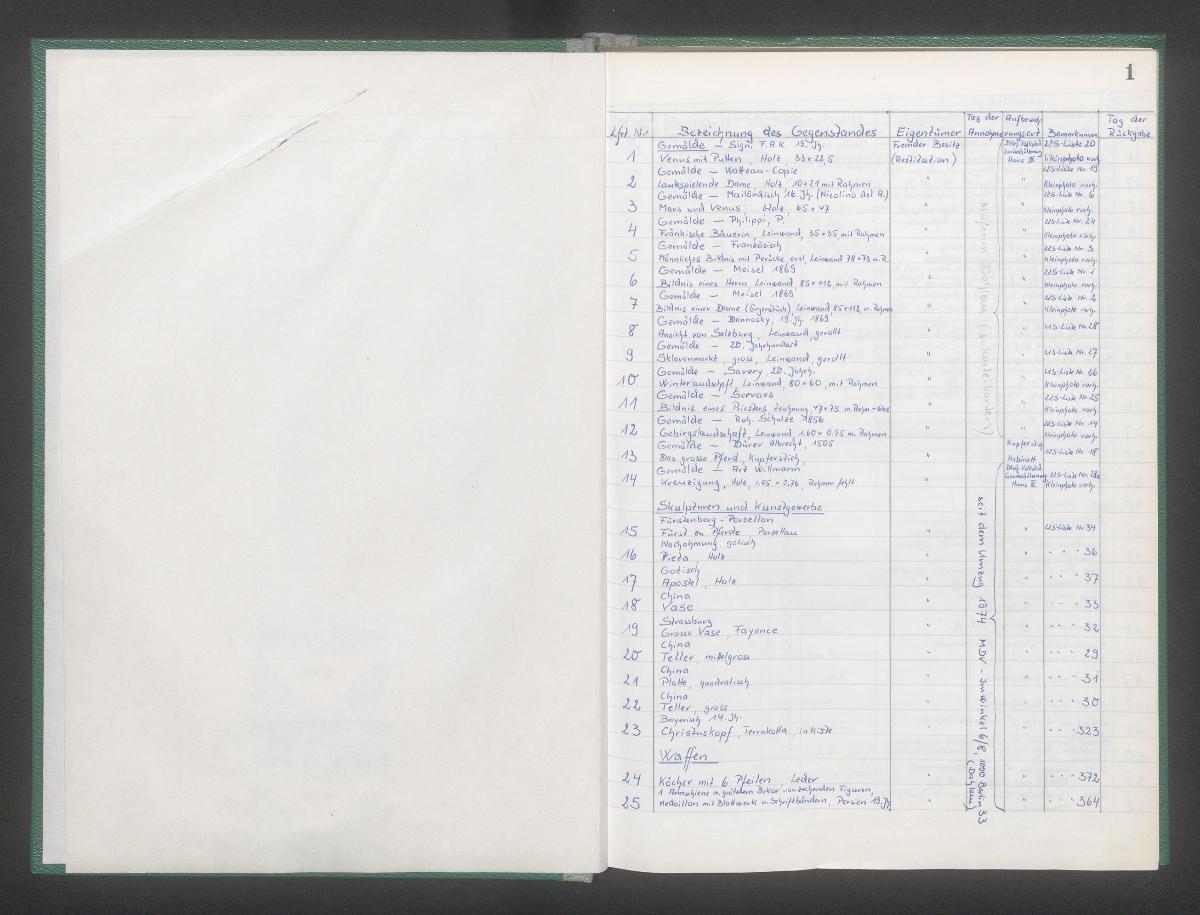 1
Lfd. Nr. Bezeichnung des Gegenstandes Eigentümer Tag der Annahme Aufbewahrungsort Bemerkungen Tag der Rückgabe
Gemälde — Sign. F.A.K 19. Jh. Fremder Besitz US-Liste 20
1 Venus mit Putten, Holz, 33 x 22,5 (Restitution) Haus III Kleinphoto vorh.
Gemälde — Watteau-Copie US-Liste Nr. 19
2 Lautspielende Dame, Holz 10 x 21 mit Rahmen " " Kleinphoto vorh.
Gemälde — Mailändisch 16. Jh. (Nicolino del A.) US-Liste Nr. 6
3 Mars und Venus, Holz, 65 x 47 " " Kleinphoto vorh.
Gemälde — Philippi, P. US-Liste Nr. 24
4 Fränkische Bäuerin, Leinwand, 35 x 35, mit Rahmen " " Kleinphoto vorh.
Gemälde — Französisch US-Liste Nr. 3
5 Männliches Bildnis mit Perücke, oval, Leinwand 78 x 73 m. R. " " Kleinphoto vorh.
Gemälde — Meisel 1869 US-Liste Nr. 1
6 Bildnis eines Herrn, Leinwand, 85 x 112, mit Rahmen " " Kleinphoto vorh.
Gemälde — Meisel 1869 US-Liste Nr. 2
7 Bildnis einer Dame (Gegenstück), Leinwand 85 x 112, m. Rahmen " " Kleinphoto vorh.
Gemälde — 19. Jh. 1869
8 Ansicht von Salzburg, Leinwand, gerollt " " US-Liste Nr. 28
Gemälde — 20. Jahrhundert
9 Sklavenmarkt, gross, Leinwand, gerollt " " US-Liste Nr. 27
Gemälde — Savery, 20. Jahrh. US-Liste Nr. 26
10 Winterlandschaft, Leinwand, 80 x 60, mit Rahmen " " Kleinphoto vorh.
Gemälde — Servaes US-Liste Nr. 25
11 Bildnis eines Priesters, Zeichnung 47 x 75 m. Rahm + Glas " " Kleinphoto vorh.
Gemälde — Rob. Schulze 1856 US-Liste Nr. 14
12 Gebirgslandschaft, Leinwand, 1.60 x 0.95 m. Rahmen " " Kleinphoto vorh.
Gemälde — Dürer, Albrecht, 1505 Kupferstich
13 Das grosse Pferd, Kupferstich, " Kabinett US-Liste Nr. 18
Gemälde — Art Willmann US-Liste Nr. 28a
14 Kreuzigung, Holz, 1.05 x 0.76, Rahmen fehlt " Haus III Kleinphoto vorh.
Museum Dahlem (s. Karteikarten)
Skulpturen und Kunstgewerbe
Fürstenberg - Porzellan
15 Fürst zu Pferde Porzellan " " US-Liste Nr 34
Nachahmung, gotisch
16 Pieta, Holz " " " " " 36
Gotisch
17 Apostel, Holz " " " " " 37
China
18 Vase " " " " " 33
Strassburg
19 Grosse Vase, Fayence " " " " " 32
China
20 Teller, mittelgross " " " " " 29
China
21 Platte, quadratisch " " " " " 31
China
22 Teller, gross " " " " " 30
Bayerisch 14. Jh.
23 Christuskopf, Terrakotta, in Kiste " " " " " 323
Waffen
24 Köcher mit 6 Pfeilen, Leder " " " " " 372
1 Armschiene m. geätztem Dekor von zechenden Figuren,
25 Medaillon mit Blattwerk u. Schriftbändern, Persien 19. Jh " " " " " 364
seit dem Umzug 1974 MDV - Im Winkel 6/8, 1000 Berlin 33
(Dahlem)